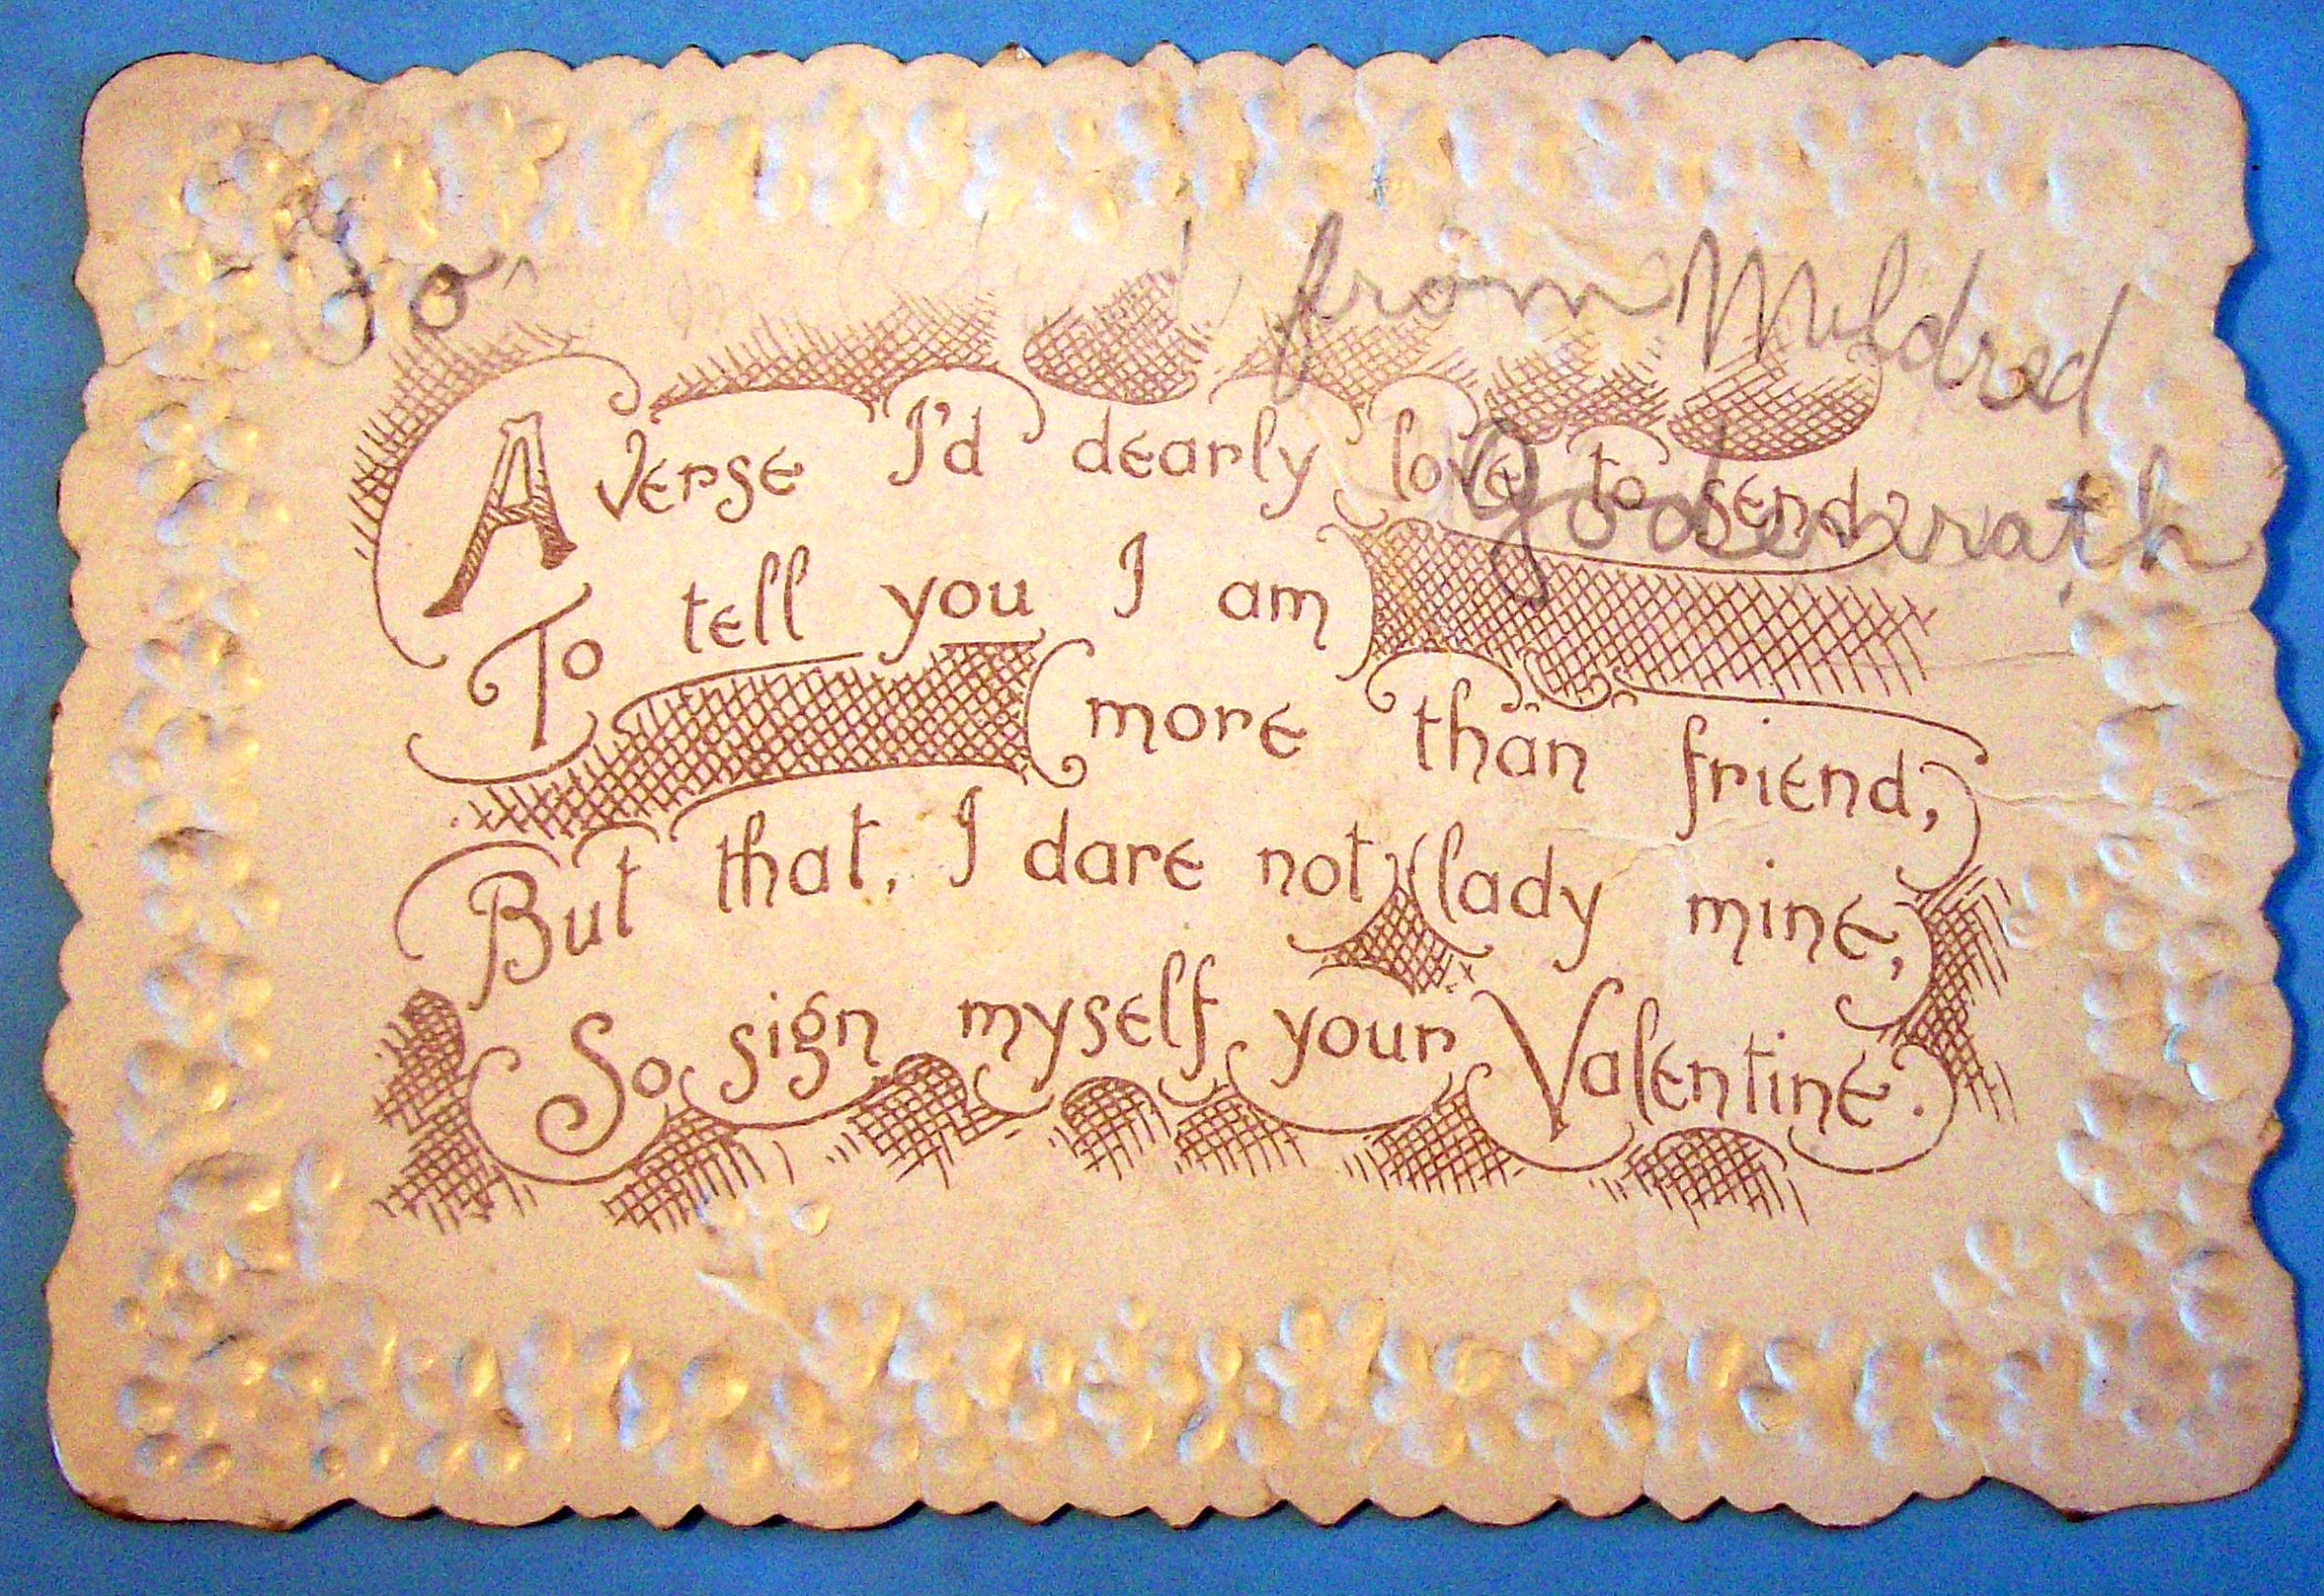 To from Mildred
Godenrath
A verse I'd dearly love to send
To tell you I am more than friend,
But that, I dare not lady mine,
So sign myself your Valentine.